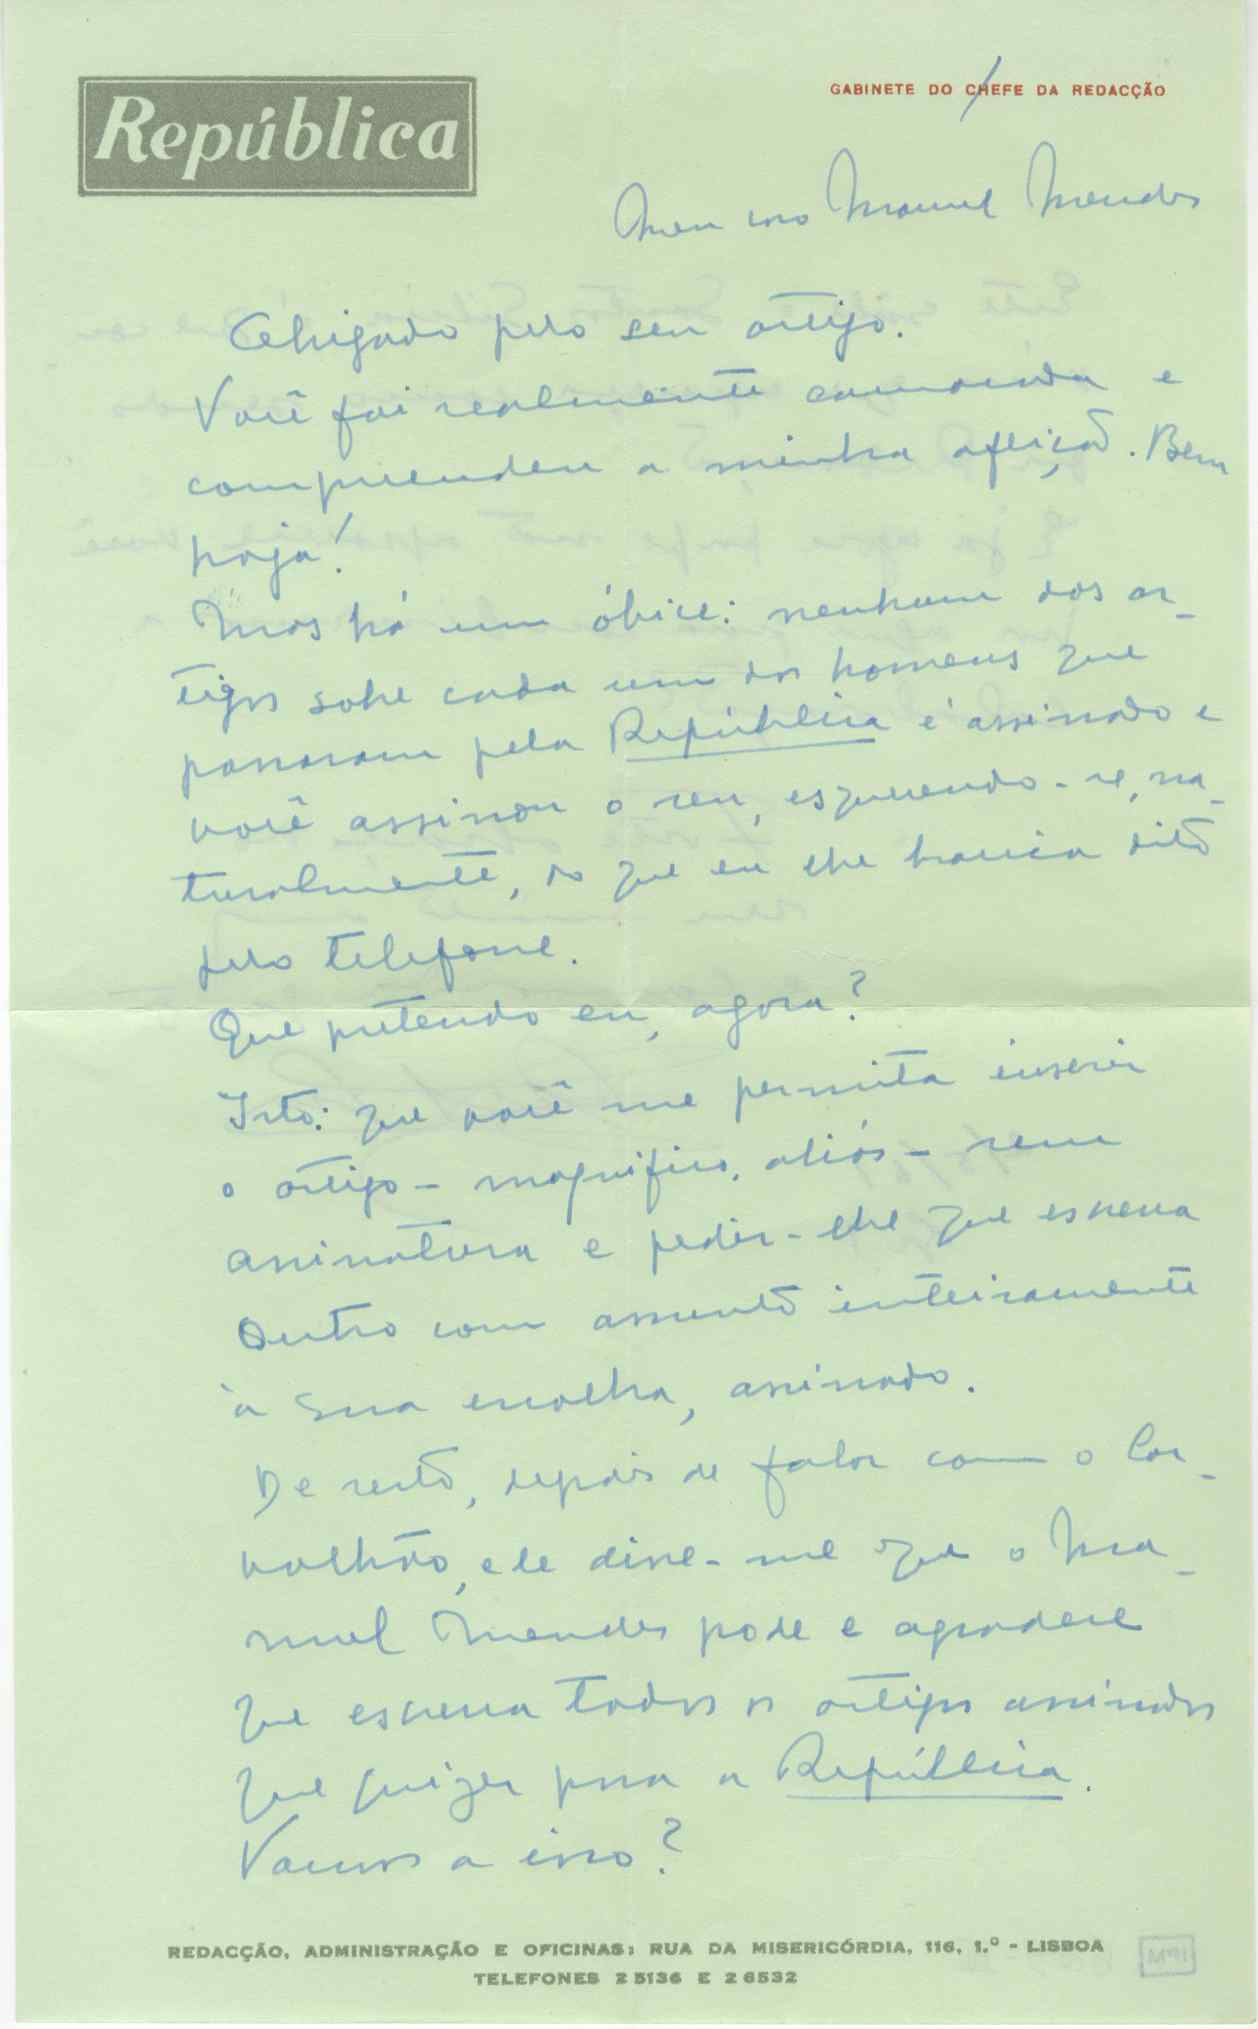 República
GABINETE DO CHEFE DA REDACÇÃO
Meu caro Manuel Mendes
Obrigado pelo seu artigo.
Você foi realmente camarada e
compreendeu a minha aflição. Bem
haja!
Mas há um óbice: nenhum dos ar-
tigos sobre cada um dos homens que
passaram pela República é assinado e
você assinou o seu, esquecendo-se, na-
turalmente, do que eu lhe havia dito
pelo telefone.
Que pretendo eu, agora?
Isto: que você me permita inserir
o artigo - magnífico, aliás - sem
assinatura e pedir-lhe que escreva
outro com assunto inteiramente
à sua escolha, assinado.
De resto, depois de falar com o Car-
valhão, ele disse-me que o Ma-
nuel Mendes pode e agradece
que escreva todos os artigos assinados
que quizer para a República.
Vamos a isso?
REDACÇÃO, ADMINISTRAÇÃO E OFICINAS: RUA DA MISERICÓRDIA, 116, 1.º - LISBOA
TELEFONES 2 5136 E 2 6532